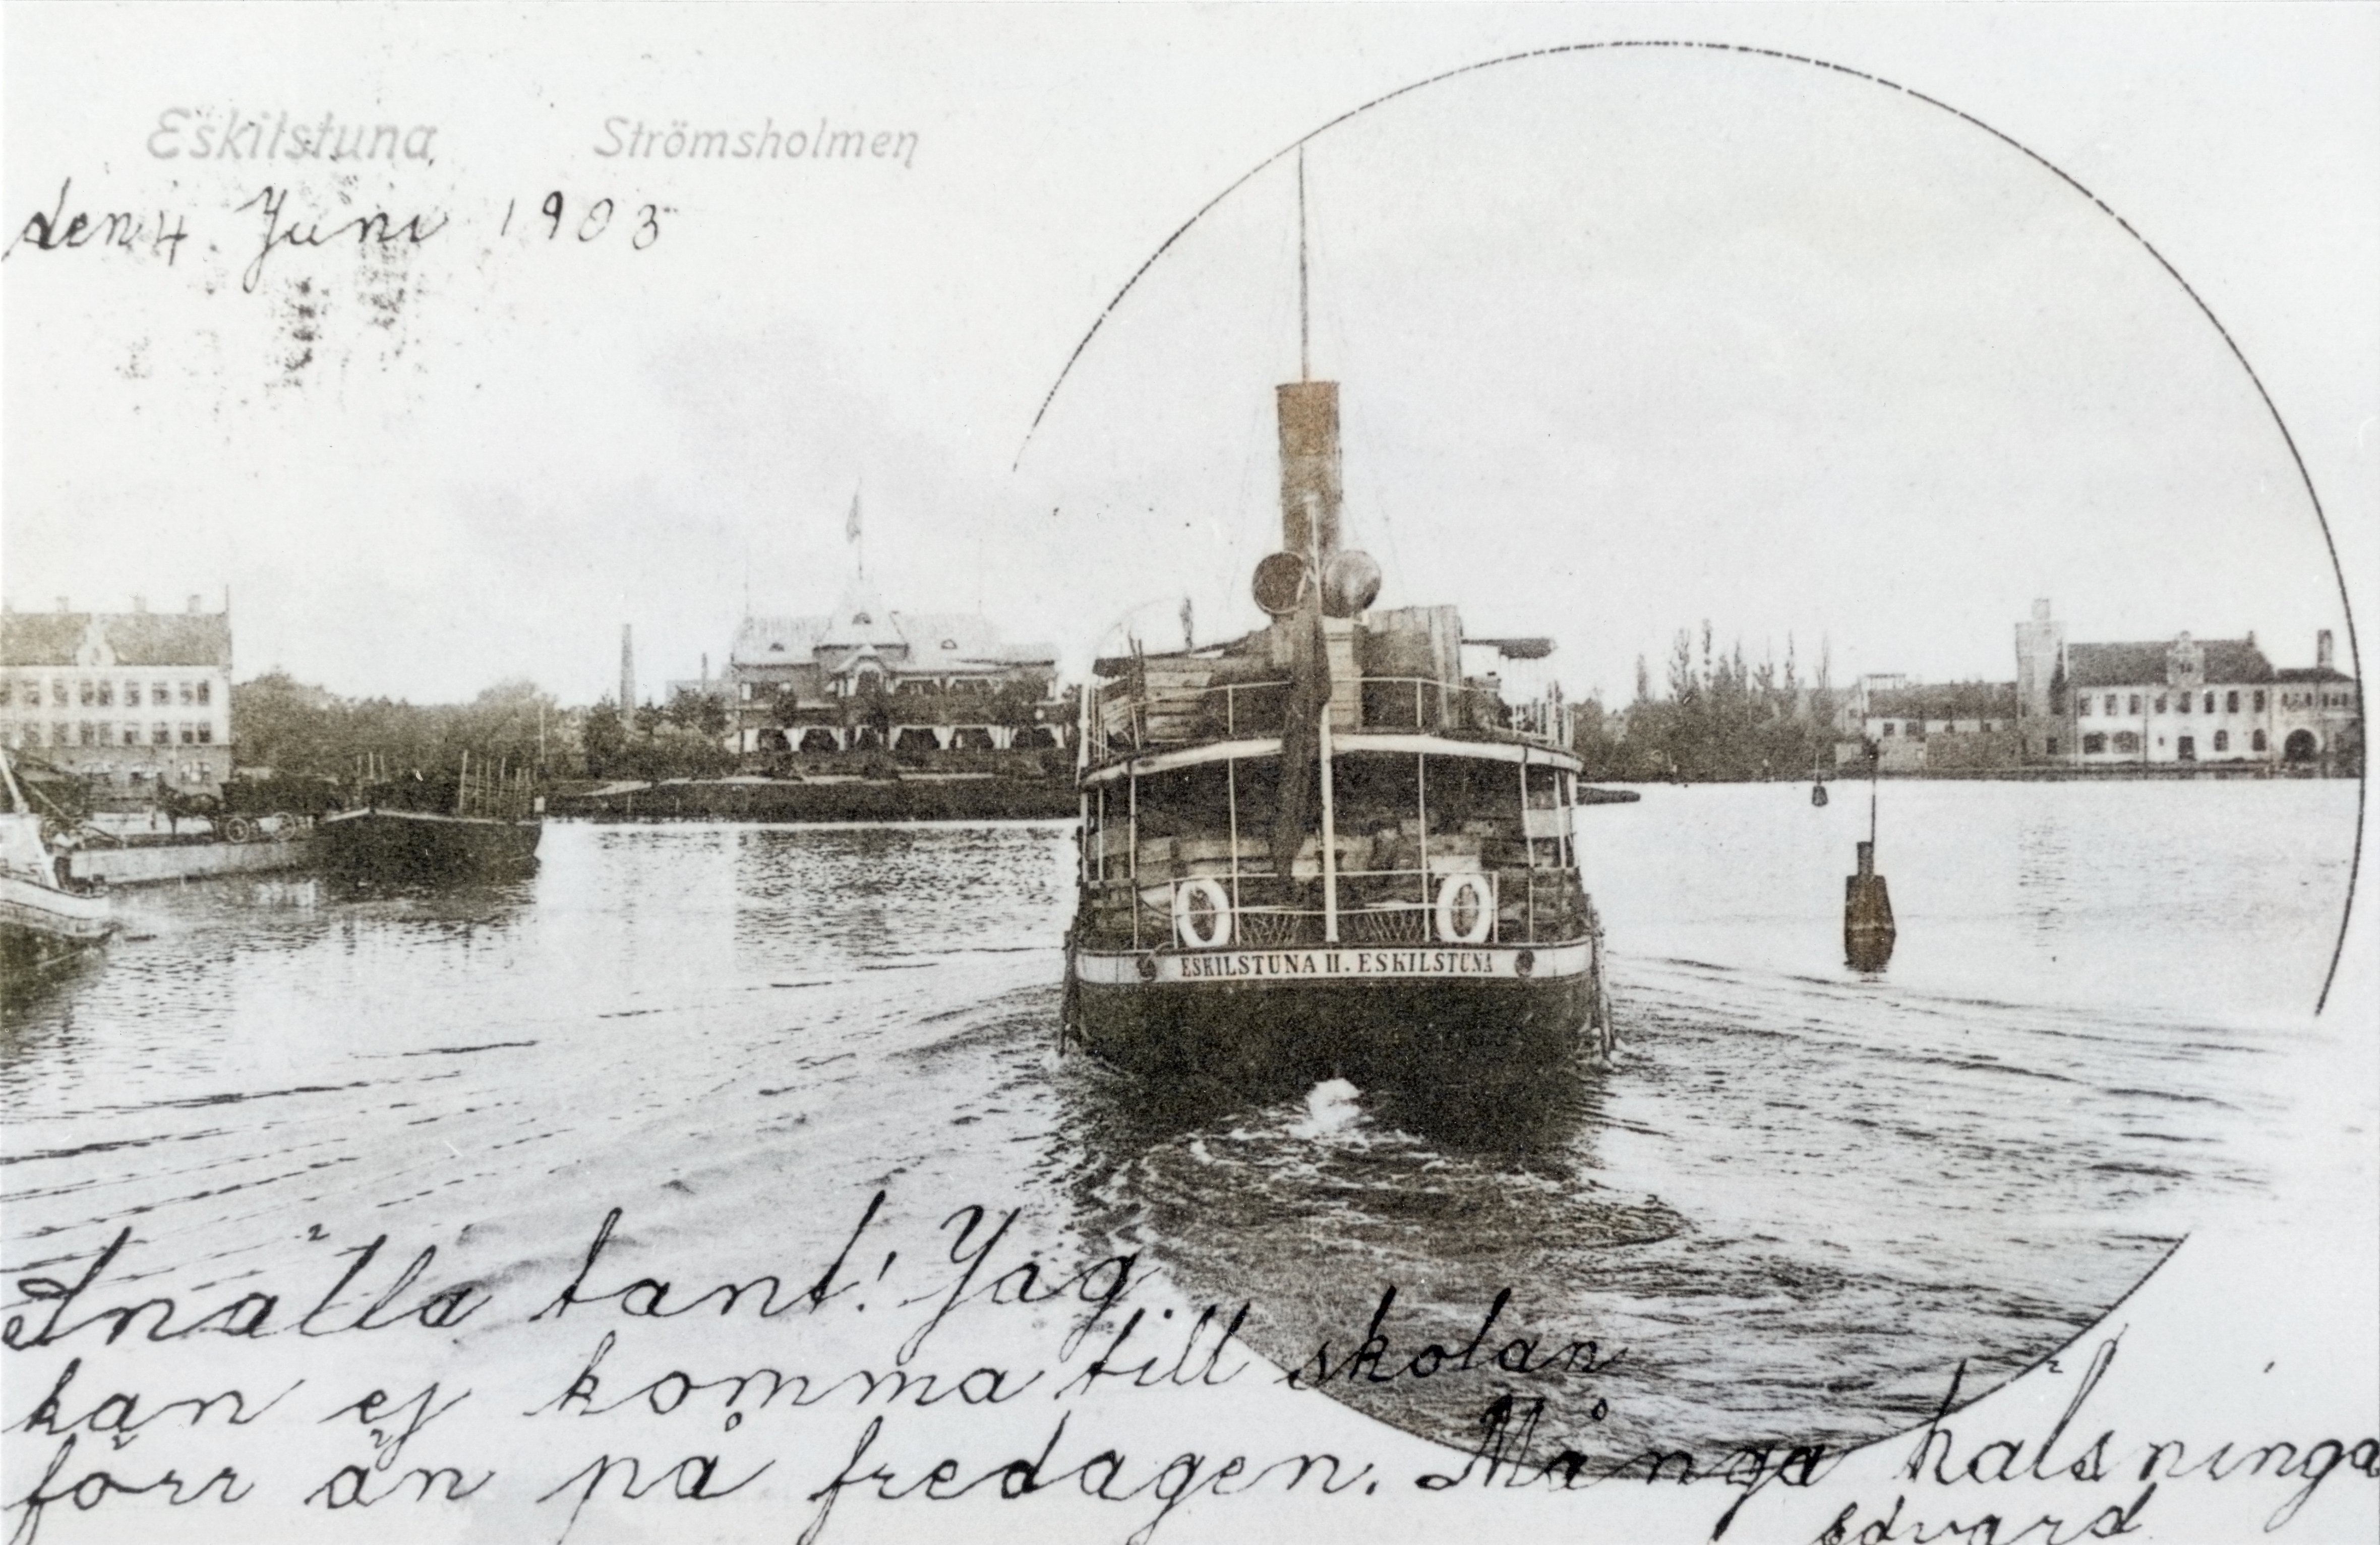 Eskilstuna Strömsholmen
den 4 Juni 1903
ESKILSTUNA II. ESKILSTUNA
Snälla tant! Jag
kan ej komma till skolan
förr än på fredagen. Många hälsninga
Edvard